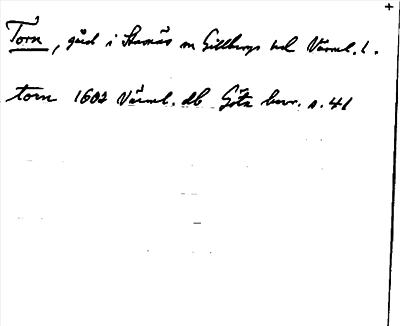 Torn, gård i Stavnäs sn Gillbergs hd Värml. l.
torn 1602 Värml. db Göta hovr. s. 41